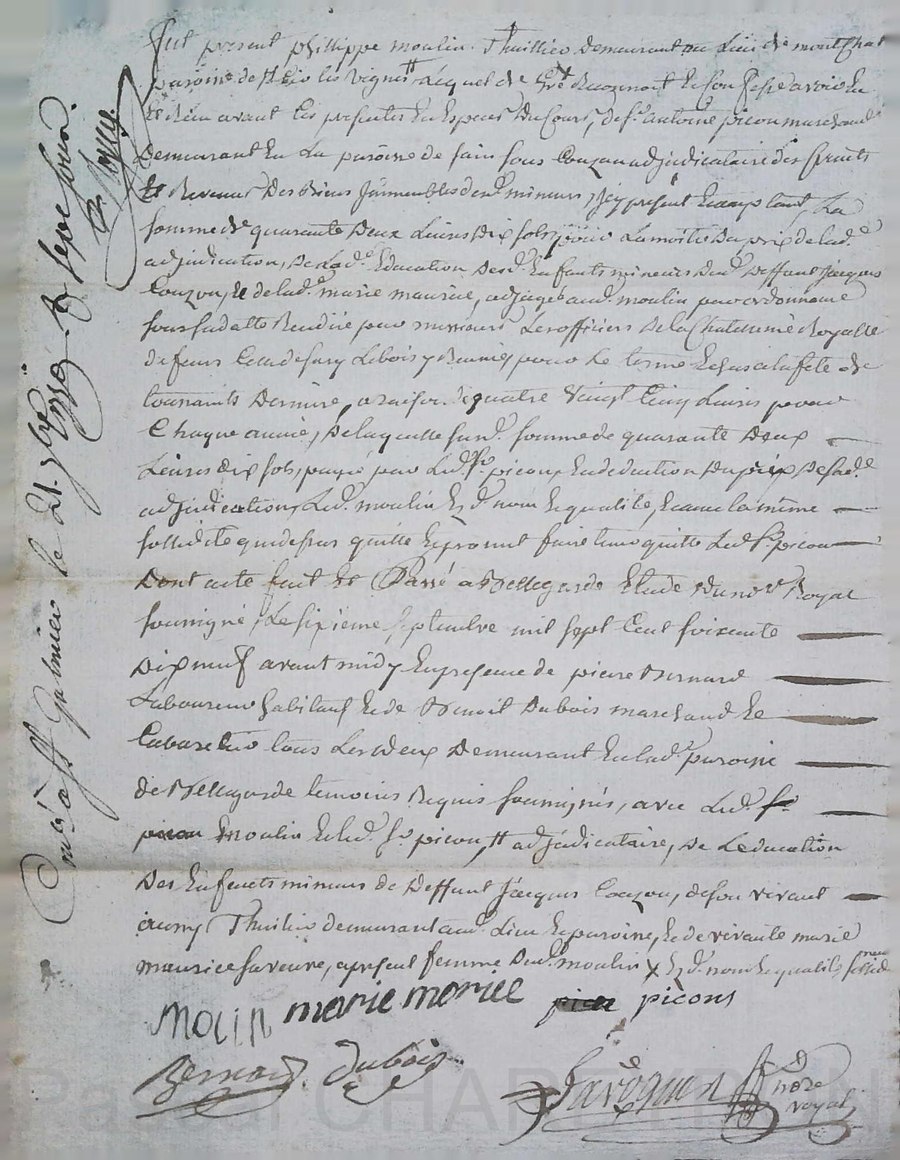 fut present phillippe moulin Thuillier demeurant au Lieu de montchat
paroisse de lequel de gré Reconnoit et confesse avoir eu
et Receu avant les presentes en Especes du Cours, de sr. antoine picon marchand
Demeurant en La paroisse de sain sous Couzan adjudicataire des fruits
et Revenus Des Biens Jmmeubles desd. mineurs, jcy présent acceptant, La
somme de quarante Deux Livres Dix sols, pour La moitié Du prix de lad.e
adjudication, De Lad.e Education Desd. Enfants mineurs dud. Deffunt Jacques
Couzon, et de lad.e marie maurice, adjugé aud. moulin par ordonnance
sous sa datte Rendüe par messieurs Les officiers De la Chatelenie Royalle
de feurs Celle de sury Le bois y Reunie, pour Le terme Echus a la fete de
toussaints Derniere, a raison de quatre Vingt Cinq Livres pour
Chaque année, De laquelle susd. somme de quarante Deux
Livres dix sols, payé par Led. sr. picon, En deduction Du prix De lad.e
adjudication, Led. moulin Esd. nom et qualité, avec la même
sollidité que dessus quitte et promet faire tenir quitte Led. sr. picon
Dont acte fait et Passé a Bellegarde Etude du nore. Royal
soussigné, Le sixieme septembre mil sept Cent soixante
Dix neuf avant midy En presence de pierre Bernard
Laboureur habitant et de Benoit Dubois marchand et
Cabaretier tous Les deux Demeurant en lad. paroisse
de Bellegarde temoins Requis soussignés, avec Led. sr.
picon moulin et led. sr. picon, tt adjudicataire, De Leducation
Des Enfents mineurs de Deffunt Jacques Couzon, de son vivant
aussy Thuilier demeurant aud. Lieu et paroisse, et de vivante marie
maurice sa veuve, a présent femme Dud. moulin x Esd. noms et qualités
Molin marie moriee picons
Bernard dubois nore royal
Con.lé a st Galmier le 21 7bre 1779 R sept sous
Pascal CHAMBEYRON